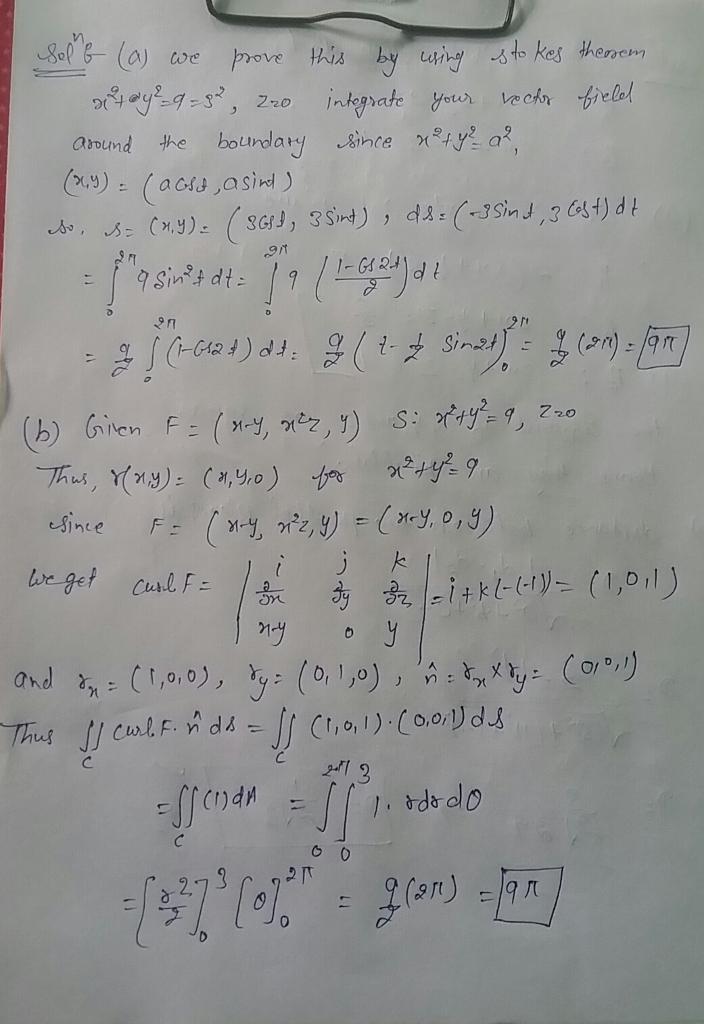 Solⁿ:- (a) we prove this by using stokes theorem
x²+y²=9=3², z=0 integrate your vector field
around the boundary since x²+y²=a²,
(x,y) = (acost, asint)
so, s = (x,y) = (3cost, 3sint), ds = (-3sint, 3cost)dt
= ∫₀^2π 9sin²t dt = ∫₀^2π 9 ((1-cos2t)/2) dt
= 9/2 ∫₀^2π (1-cos2t) dt = 9/2 (t - 1/2 sin2t)₀^2π = 9/2 (2π) = 9π
(b) Given F = (x-y, x²z, y) S: x²+y²=9, z=0
Thus, r(x,y) = (x,y,0) for x²+y²=9
since F = (x-y, x²z, y) = (x-y, 0, y)
We get curl F = | i j k ; ∂/∂x ∂/∂y ∂/∂z ; x-y 0 y | = i+k(-(-1)) = (1,0,1)
and rₓ = (1,0,0), r_y = (0,1,0), n̂ = rₓ×r_y = (0,0,1)
Thus ∬_C curl F. n̂ ds = ∬_C (1,0,1).(0,0,1) ds
= ∬_C (1) dA = ∫₀^2π ∫₀^3 1. rdrdθ
= [r²/2]₀^3 [θ]₀^2π = 9/2 (2π) = 9π